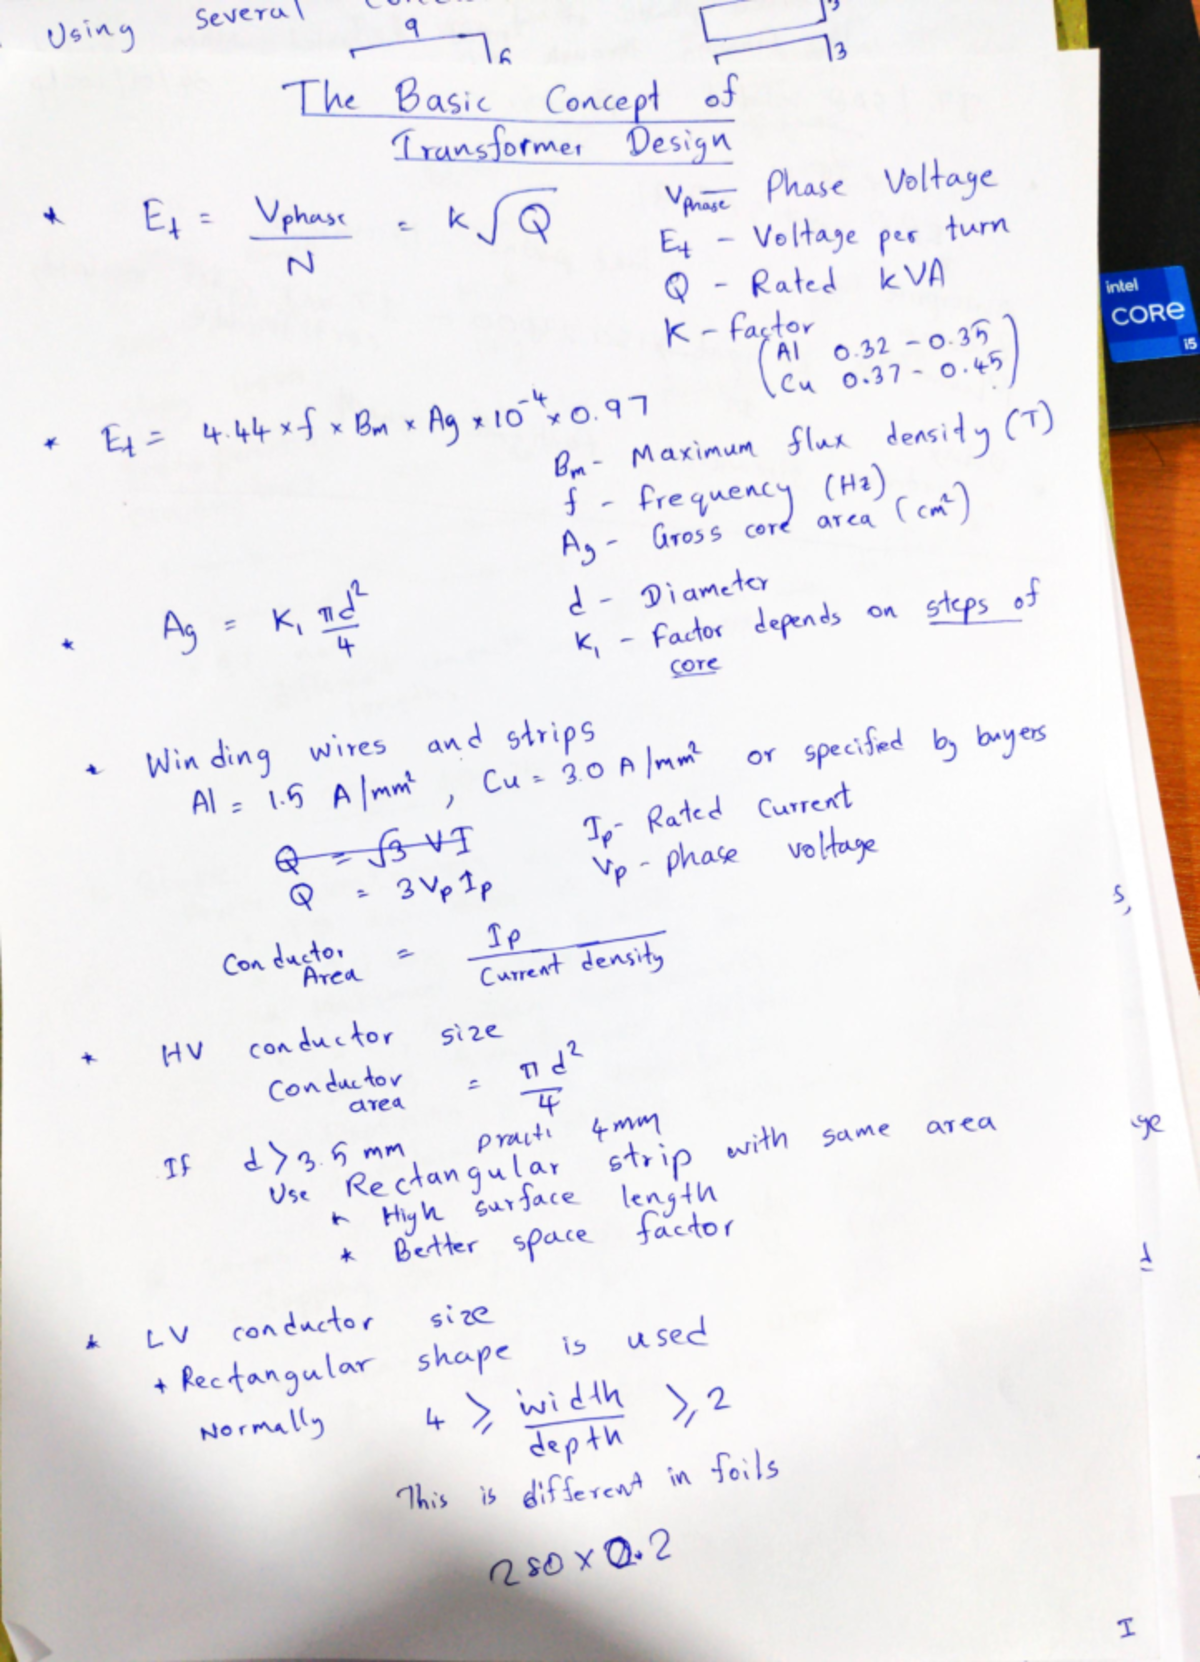 Using several
9
6
3
3
The Basic Concept of
Transformer Design
* Et = Vphase / N = K√Q
Vphase - Phase Voltage
Et - Voltage per turn
Q - Rated kVA
K - factor
(Al 0.32 - 0.35
Cu 0.37 - 0.45)
* Et = 4.44 x f x Bm x Ag x 10^-4 x 0.97
Bm - Maximum flux density (T)
f - frequency (Hz)
Ag - Gross core area (cm²)
* Ag = K₁ πd²/4
d - Diameter
K₁ - Factor depends on steps of
core
* Winding wires and strips
Al = 1.5 A/mm², Cu = 3.0 A/mm² or specified by buyers
Q = √3 VI
Q = 3VpIp
Ip - Rated Current
Vp - phase voltage
Conductor Area = Ip / Current density
* HV conductor size
Conductor area = πd²/4
If d > 3.5 mm practi 4mm
Use Rectangular strip with same area
* High surface length
* Better space factor
* LV conductor size
* Rectangular shape is used
Normally 4 ⩾ width/depth ⩾ 2
This is different in foils
280 x 0.2
s,
ge
d
I
intel
CORE
i5